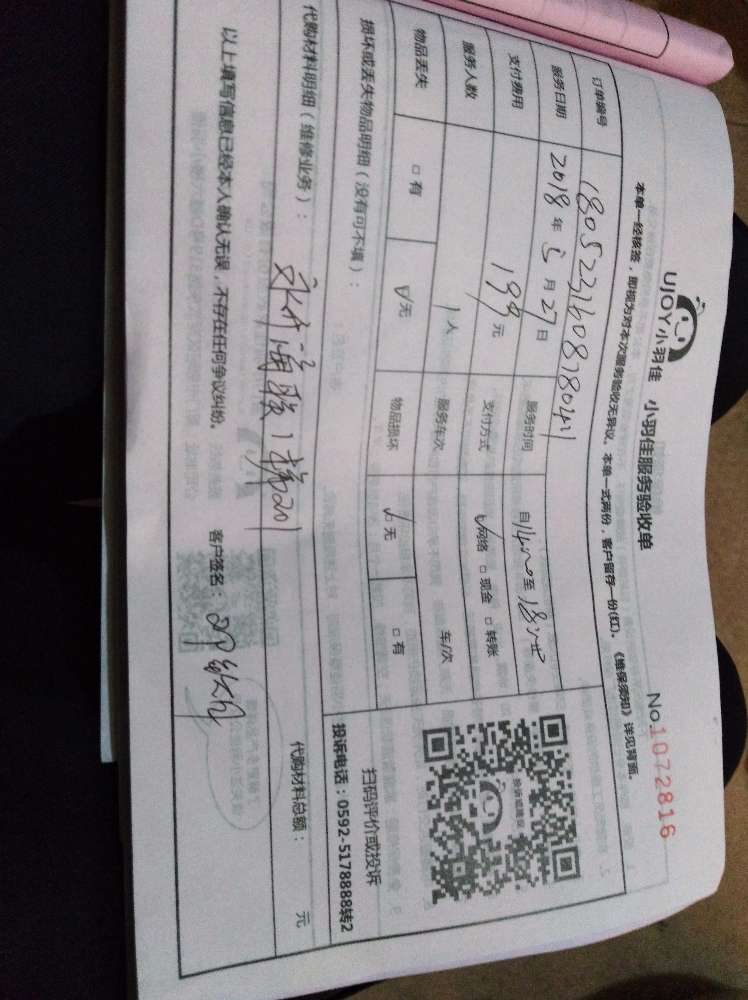 UJOY小羽佳 小羽佳服务验收单
No.1072816
本单一经核签，即视为对本次服务验收无异议。本单一式两份，客户留存一份(红)。《维保须知》详见背面。
订单编号 180523160818041
服务日期 2018年5月27日 服务时间 自14:00至18:00
支付费用 199元 支付方式 ☑网络 □现金 □转账
服务人数 1人 服务车次 车/次
物品丢失 □有 ☑无 物品损坏 ☑无 □有
投诉或建议
扫码评价或投诉
投诉电话：0592-5178888转2
损坏或丢失物品明细（没有可不填）：
代购材料明细（维修业务）： 代购材料总额： 元
201
以上填写信息已经本人确认无误，不存在任何争议纠纷。 客户签名：